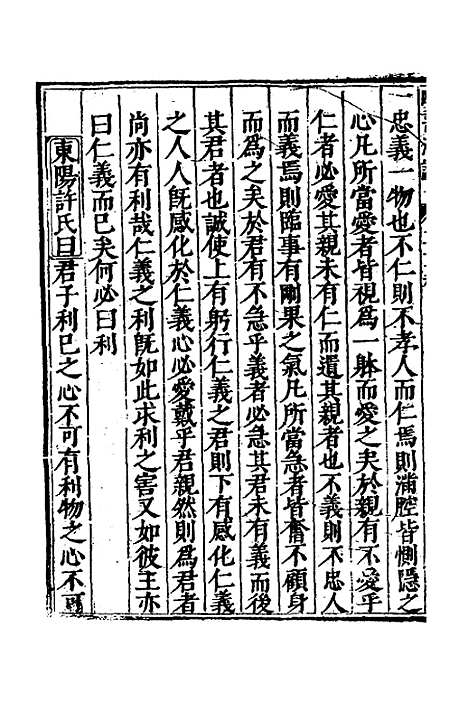 一忠義一物也不仁則不孝人而仁焉則滿腔皆惻隱之
心凡所當愛者皆視爲一躰而愛之矣於親有不愛乎
仁者必愛其親未有仁而遺其親者也不義則不忠人
而義焉則臨事有剛果之氣凡所當急者皆奮不顧身
而爲之矣於君有不急乎義者必急其君未有義而後
其君者也誠使上有躬行仁義之君則下有感化仁義
之人人旣感化於仁義心必愛戴乎君親然則爲君者
尚亦有利哉仁義之利旣如此求利之害又如彼王亦
曰仁義而已矣何必曰利
東陽許氏曰君子利己之心不可有利物之心不可